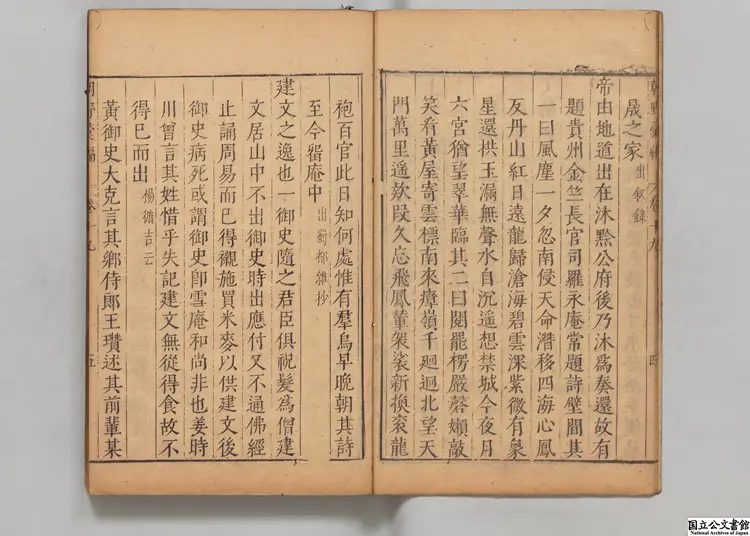 晟之家 出叙錄
帝由地道出在沐黔公府後乃沐爲奏還故有
題貴州金竺長官司羅永庵常題詩壁間其
一曰風塵一夕忽南侵天命潛移四海心鳳
返丹山紅日遠龍歸滄海碧雲深紫微有象
星還拱玉漏無聲水自沉遥想禁城今夜月
六宮猶望翠華臨其二曰閱罷楞嚴磬嬾敲
笑看黃屋寄雲標南來瘴嶺千廻迥北望天
門萬里遥欵段久忘飛鳳輦袈裟新換衮龍
四
袍百官此日知何處惟有羣烏早晚朝其詩
至今畱庵中 出蜀都雜抄
建文之逸也一御史隨之君臣俱祝髮爲僧建
文居山中不出御史時出應付又不通佛經
止誦周易而已得襯施買米麥以供建文後
御史病死或謂御史卽雪庵和尚非也姜時
川曾言其姓惜乎失記建文無從得食故不
得已而出 楊循吉云
黃御史大克言其鄉侍郎王瓚述其前輩某
朝野彙編 卷十九 五
国立公文書館
National Archives of Japan